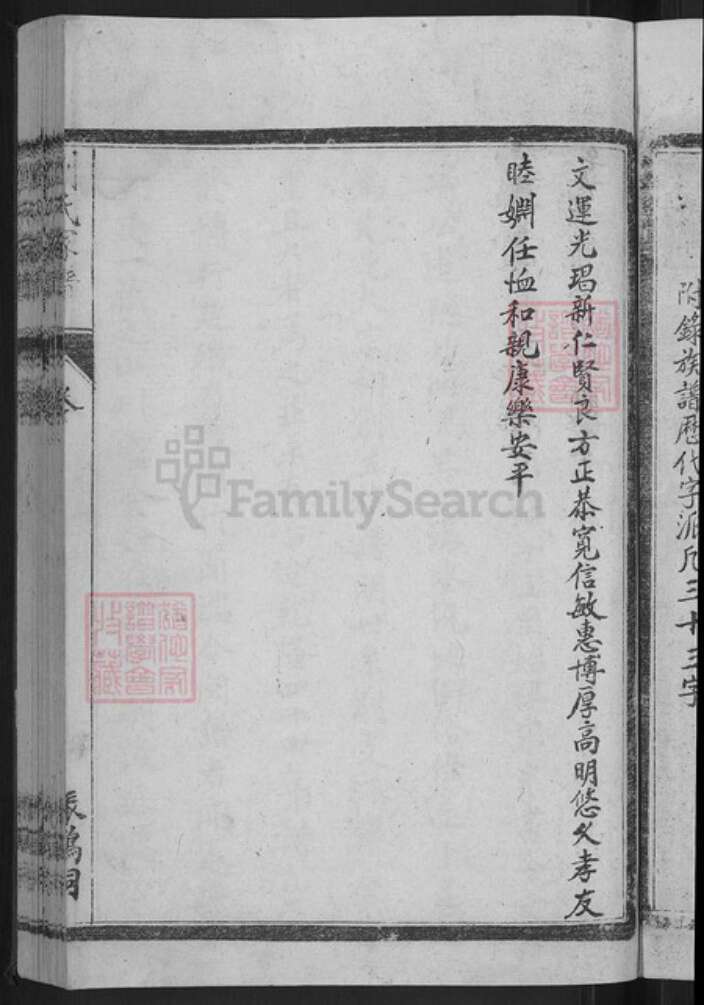 附錄族譜歷代字派凡三十三字
文運光瑞新仁賢良方正恭寬信敏惠博厚高明悠久孝友
睦婣任恤和親康樂安平
氏家譜
卷
FamilySearch